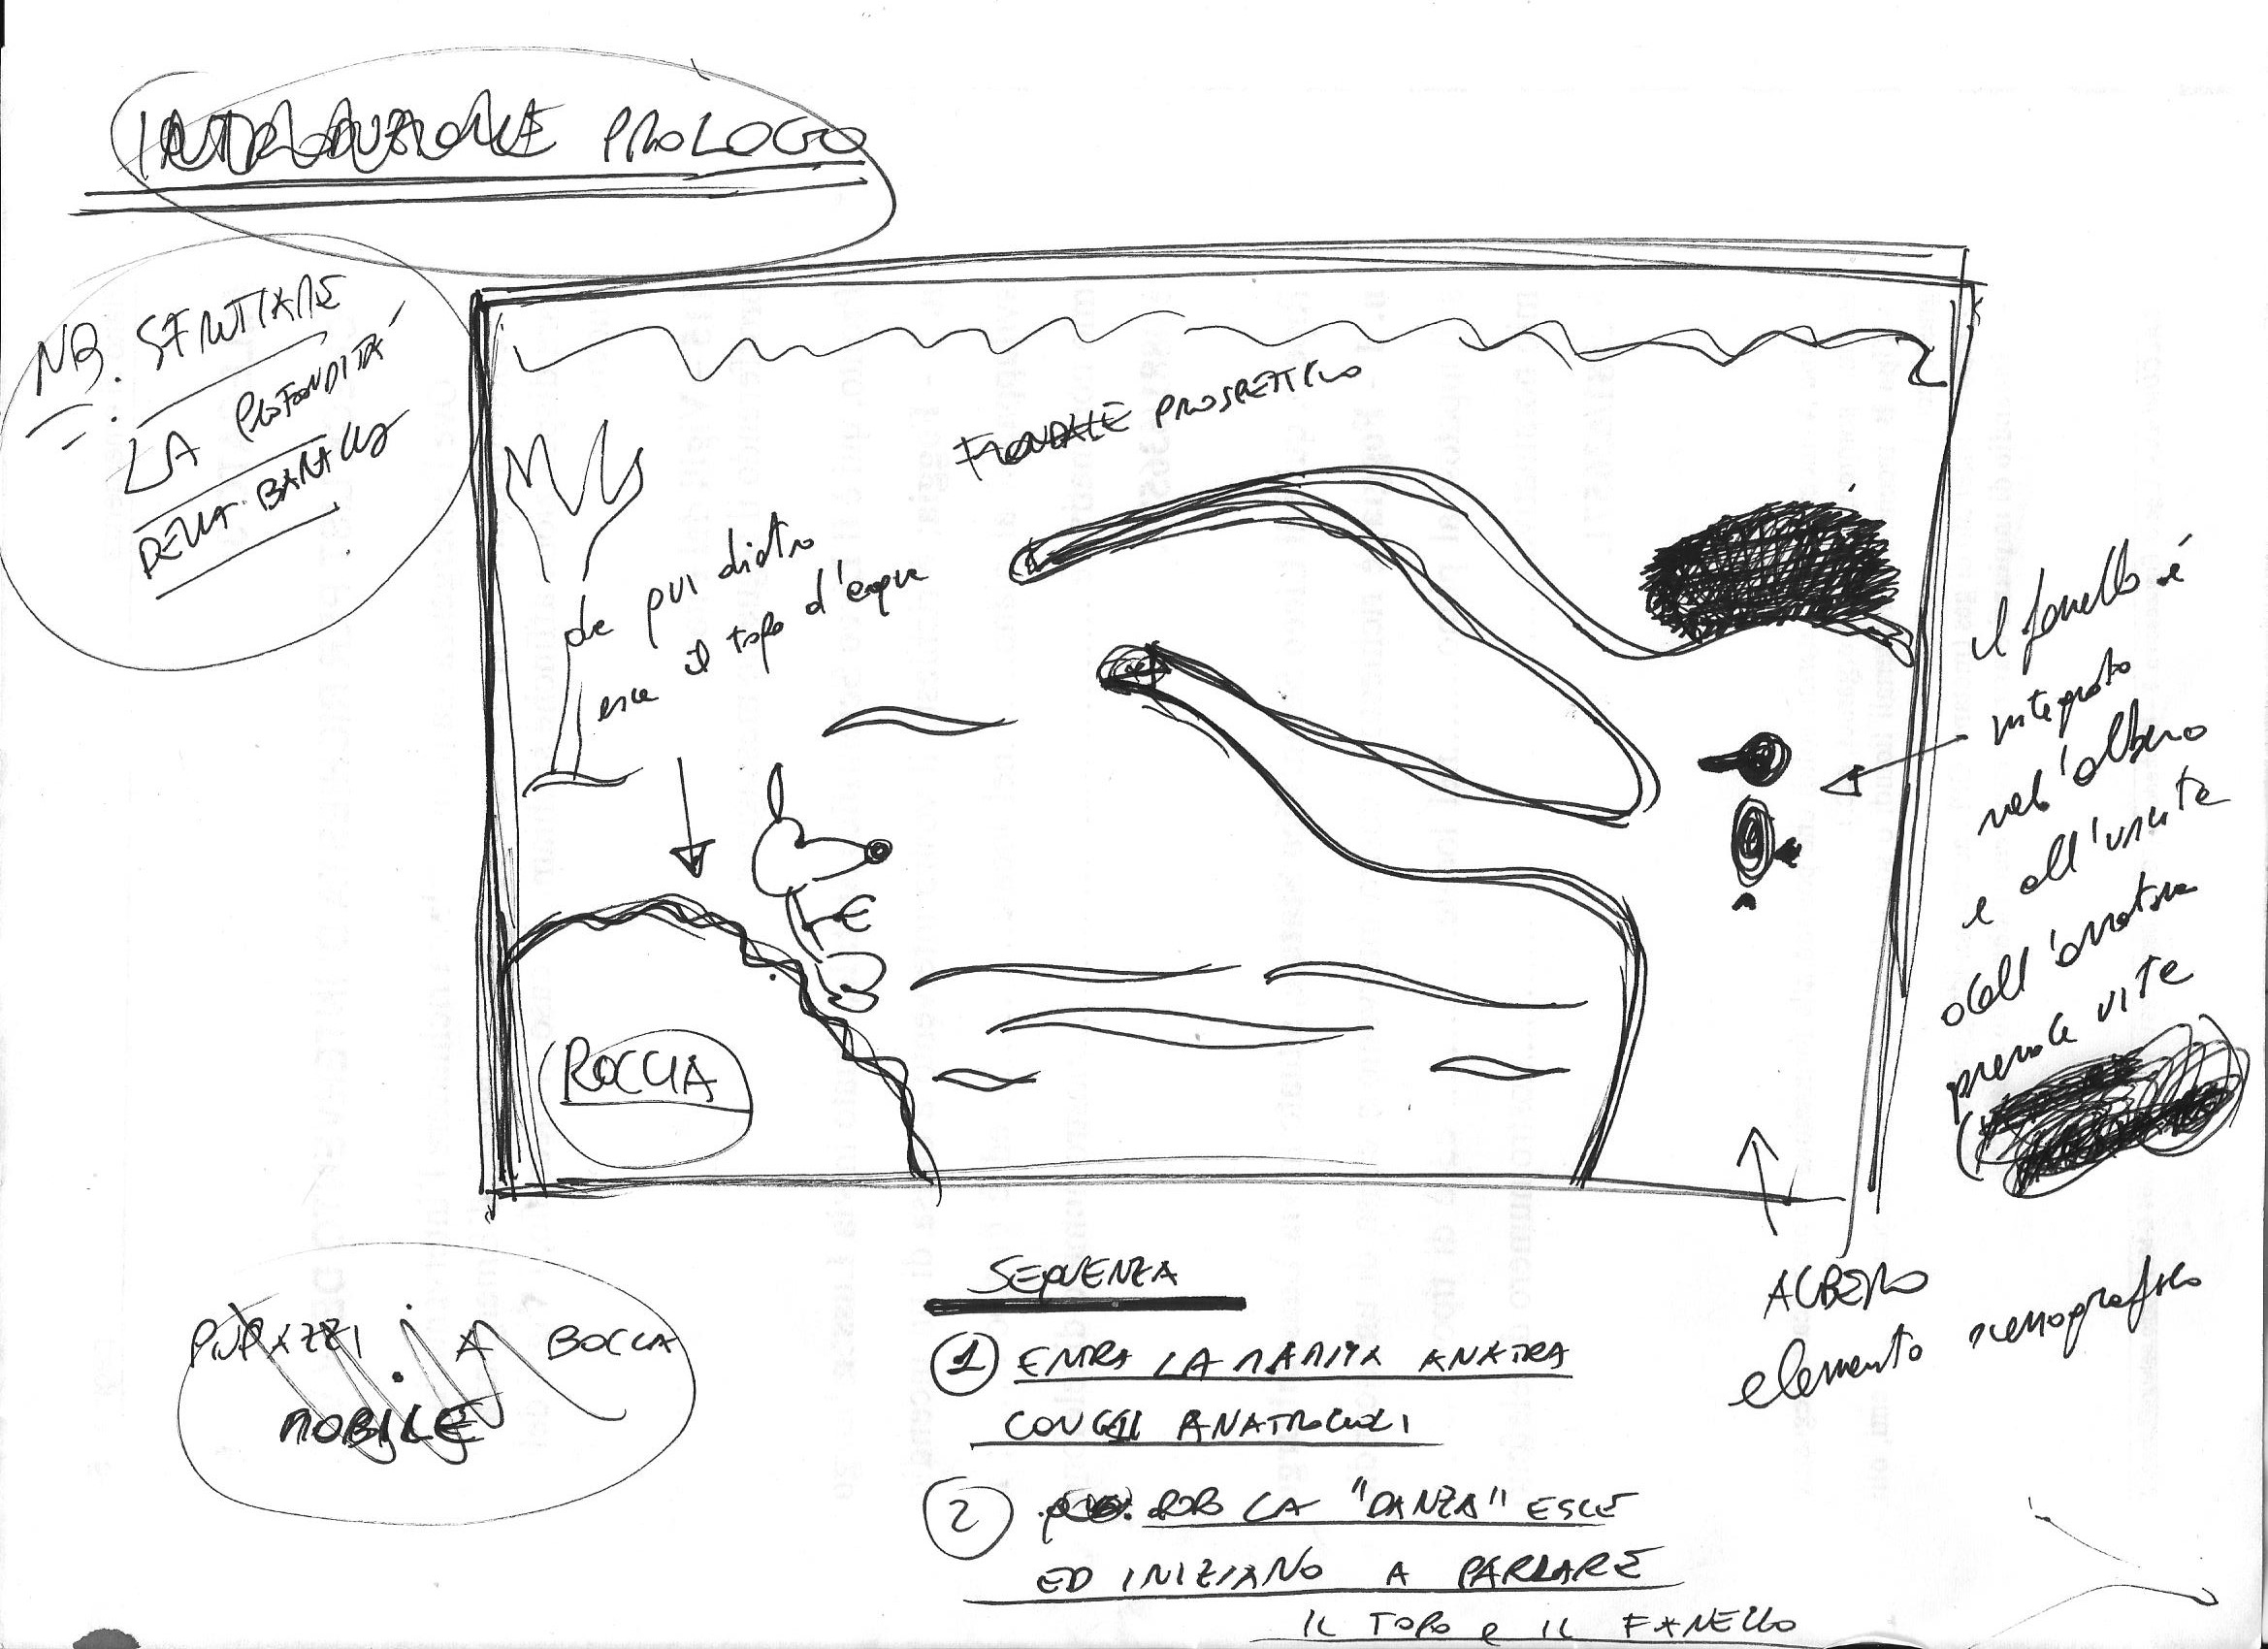 INTRODUZIONE PROLOGO
NB. SFRUTTARE
LA PROFONDITÁ
DELLA BARACCA
FONDALE PROSPETTICO
da qui dietro
esce il topo d'acqua
il fanello é
integrato
nell'albero
e all'uscita
dell'anatra
prende vita
ROCCIA
ALBERO
elemento scenografico
PUPAZZI A BOCCA
MOBILE
SEQUENZA
1 ENTRA LA MAMMA ANATRA
CON GLI ANATROCCOLI
2 DOPO LA "DANZA" ESCE
ED INIZIANO A PARLARE
IL TOPO e IL FANELLO